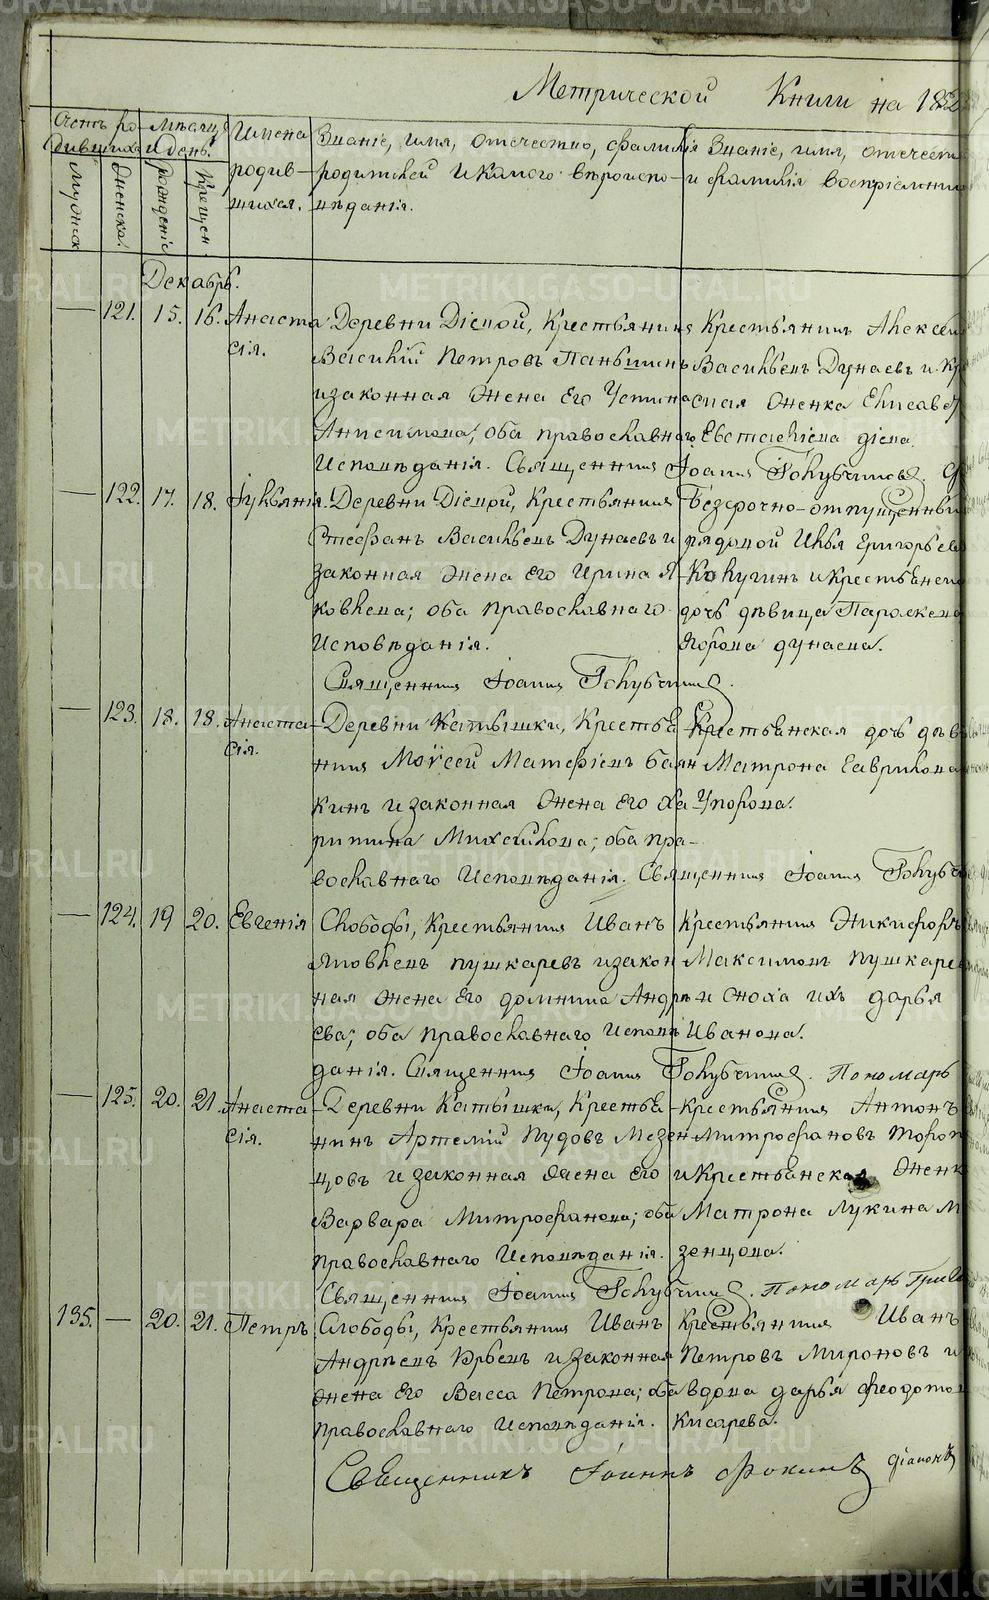 Метрической Книги на 185
Счетъ ро
дившихся
Мѣсяцъ
и день.
Имена
родив-
шихся.
Званіе, имя, отечество, фамилія
родителей и какого вѣроиспо-
вѣданія.
Званіе, имя, отечест
и фамилія воспріемни
Мужска
Женска.
Рожденіе
Крещен.
Декабрь.
— 121. 15. 16. Анаста
сія.
Деревни Дікой, Крестьянинъ
Василій Петровъ Паньшинъ
и законная жена Его Устина
Анисимова; оба православнаго
Исповѣданія. Священникъ Іоаннъ Голубчиковъ.
Крестьянинъ Алексѣй
Васильевъ Дунаевъ и Кр
ская женка Елисавет
Евстафіева
— 122. 17. 18. Іуліанія.
Деревни Дікой, Крестьянинъ
Стефанъ Васильевъ Дунаевъ и
законная жена его Ирина Я-
ковлева; оба православнаго
Исповѣданія.
Священникъ Іоаннъ Голубчиковъ.
Безсрочно-отпущенный
рядовой Илья Григорьевъ
Кокучинъ и крестьянская
дочь дѣвица Параскева
Егорова Дунаева.
— 123. 18. 18. Анаста-
сія.
Деревни Катышки, Крестья-
нинъ Моѵсей Матфіевъ Баян
кинъ и законная жена его Ха
ритина Михайлова; оба пра-
вославнаго Исповѣданія. Священникъ Іоаннъ Голубч
Крестьянская дочь дѣв
Матрона Гаврилова
Упорова.
— 124. 19 20. Евгенія
Слободы, Крестьянинъ Иванъ
Яковлевъ Пушкаревъ и закон
ная жена Его Домника Андрѣ
ева; оба православнаго Исповѣ
данія. Священникъ Іоаннъ Голубчиковъ. Пономарь
Крестьянинъ Никифоръ
Максимовъ Пушкарев
и сноха ихъ Дарья
Иванова.
— 125. 20. 21. Анаста-
сія.
Деревни Катышки, Крестья-
нинъ Артемій Пудовъ Мезен
цовъ и законная жена его
Варвара Митрофанова; оба
православнаго Исповѣданія.
Священникъ Іоаннъ Голубчиковъ. Пономарь
Крестьянинъ Антонъ
Митрофановъ Топор
и Крестьянская женк
Матрона Лукина М
зенцова.
135. — 20. 21. Петръ
Слободы, Крестьянинъ Иванъ
Андрѣевъ Юрьевъ и законная
жена Его Васса Петрова; оба
православнаго Исповѣданія.
Крестьянинъ Иванъ
Петровъ Мироновъ и
вдова Дарья Феодотов
Кисарева.
Священникъ Іоаннъ Фокинъ діаконъ
METRIKI.GASO-URAL.RU